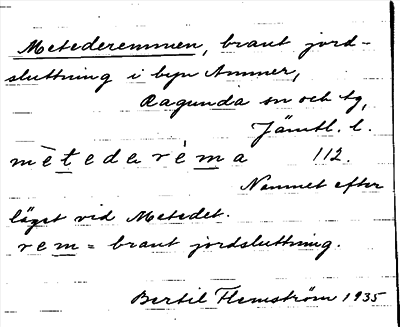 Metederemmen, brant jord-
sluttning i byn Ammer,
Ragunda sn och tg,
Jämtl. l.
mètederèma 112.
Namnet efter
läget vid Metedet.
rem = brant jordsluttning.
Bertil Flemström 1935